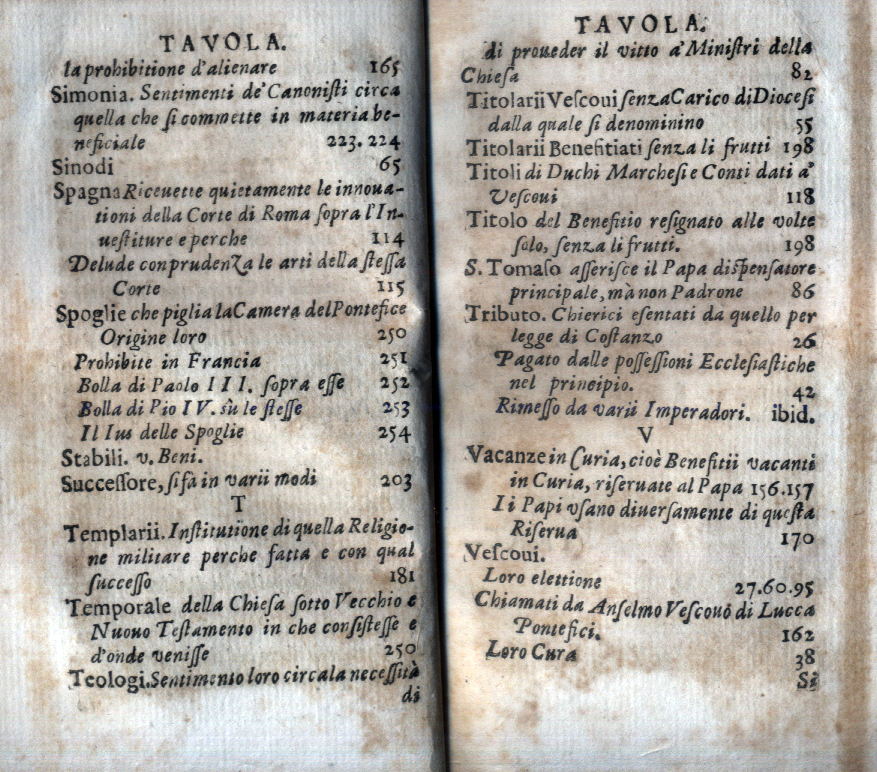 TAVOLA.
la prohibitione d'alienare 165
Simonia. Sentimenti de' Canonisti circa
quella che si commette in materia be-
neficiale 223. 224
Sinodi 65
Spagna Riceuette quietamente le innoua-
tioni della Corte di Roma sopra l'In-
uestiture e perche 114
Delude con prudenza le arti della stessa
Corte 115
Spoglie che piglia la Camera del Pontefice
Origine loro 250
Prohibite in Francia 251
Bolla di Paolo III. sopra esse 252
Bolla di Pio IV. sù le stesse 253
Il Ius delle Spoglie 254
Stabili. v. Beni.
Successore, si fà in varii modi 203
T
Templarii. Institutione di quella Religio-
ne militare perche fatta e con qual
successo 181
Temporale della Chiesa sotto Vecchio e
Nuouo Testamento in che consistesse e
d'onde venisse 250
Teologi. Sentimento loro circa la necessità
di
TAVOLA.
di proueder il vitto a' Ministri della
Chiesa 82
Titolarii Vescoui senza Carico di Diocesi
dalla quale si denominino 55
Titolarii Benefitiati senza li frutti 198
Titoli di Duchi Marchesi e Conti dati a'
Vescoui 118
Titolo del Benefitio resignato alle volte
solo, senza li frutti. 198
S. Tomaso asserisce il Papa dispensatore
principale, mà non Padrone 86
Tributo. Chierici esentati da quello per
legge di Costanzo 26
Pagato dalle possessioni Ecclesiastiche
nel principio. 42
Rimesso da varii Imperadori. ibid.
V
Vacanze in Curia, cioè Benefitii vacanti
in Curia, riseruate al Papa 156.157
Ii Papi vsano diuersamente di questa
Riserua 170
Vescoui.
Loro elettione 27.60.95
Chiamati da Anselmo Vescouo di Lucca
Pontefici. 162
Loro Cura 38
Si